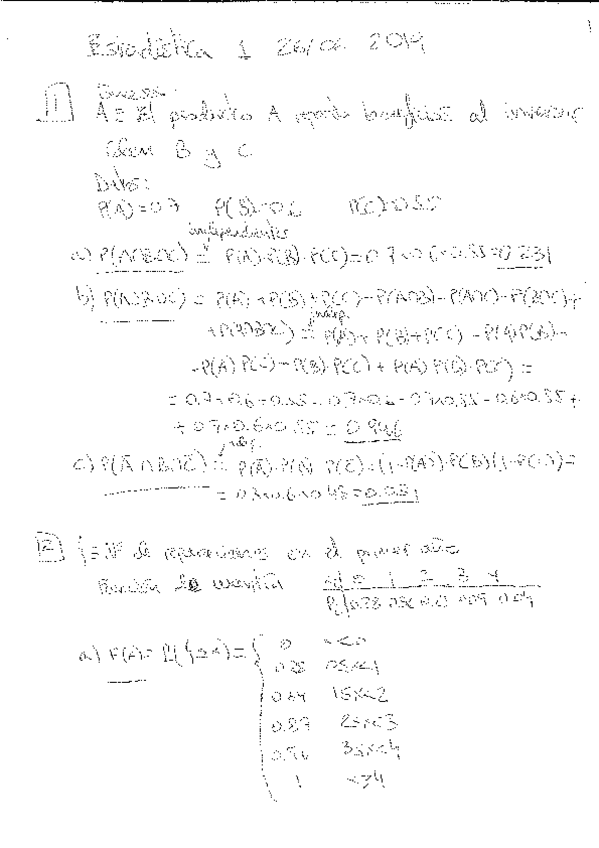 1
Estadística 1 26/02 2019
1 Sucesos:
A = El producto A reporta beneficios al inversor
Idem B y C
Datos:
P(A)=0.7 P(B)=0.6 P(C)=0.55
independientes
a) P(A∩B∩C) = P(A)·P(B)·P(C)=0.7×0.6×0.55=0.231
b) P(A∪B∪C) = P(A)+P(B)+P(C)-P(A∩B)-P(A∩C)-P(B∩C)+
indep.
+P(A∩B∩C) = P(A)+P(B)+P(C)-P(A)P(B)-
-P(A)P(C)-P(B)·P(C)+P(A)P(B)·P(C) =
= 0.7+0.6+0.55-0.7×0.6-0.7×0.55-0.6×0.55+
+0.7×0.6×0.55 = 0.946
indep.
c) P(Ā∩B∩C̄) = P(Ā)·P(B)·P(C̄)=(1-P(A))·P(B)(1-P(C))=
= 0.3×0.6×0.45=0.081
2 ξ=Nº de reparaciones en el primer año
Función de cuantía 0 1 2 3 4
a) F(x)= P(ξ≤x)=
0 x<0
0.28 0≤x<1
0.64 1≤x<2
0.87 2≤x<3
0.96 3≤x<4
1 x≥4